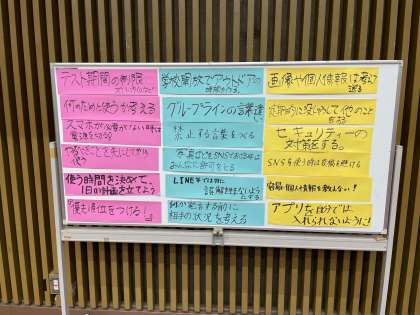 テスト期間の制限
何のために使うか考える
スマホが必要でない時は
電源を切る
やるべきことを先にしてから
使う
使う時間を決めて、
1日の計画を立てよう
「優先順位をつける」
学校開放でアウトドアの
時間を作る
グループラインの言葉遣い
禁止する言葉をつくる
写真などをSNSであげる時は
みんなに許可をとる
LINE等では特に
誤解を生まないよう
にする
何か発言する前に
相手の状況を考える
画像や個人情報は考えて
送る
定期的に没収して他のこと
をする
セキュリティーの
対策をする。
SNSを使う時は危険を避ける
個人情報を教えない!
アプリを自分では
入れられないように!